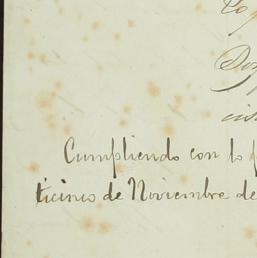 Cumpliendo con lo
ticinco de Noviembre de